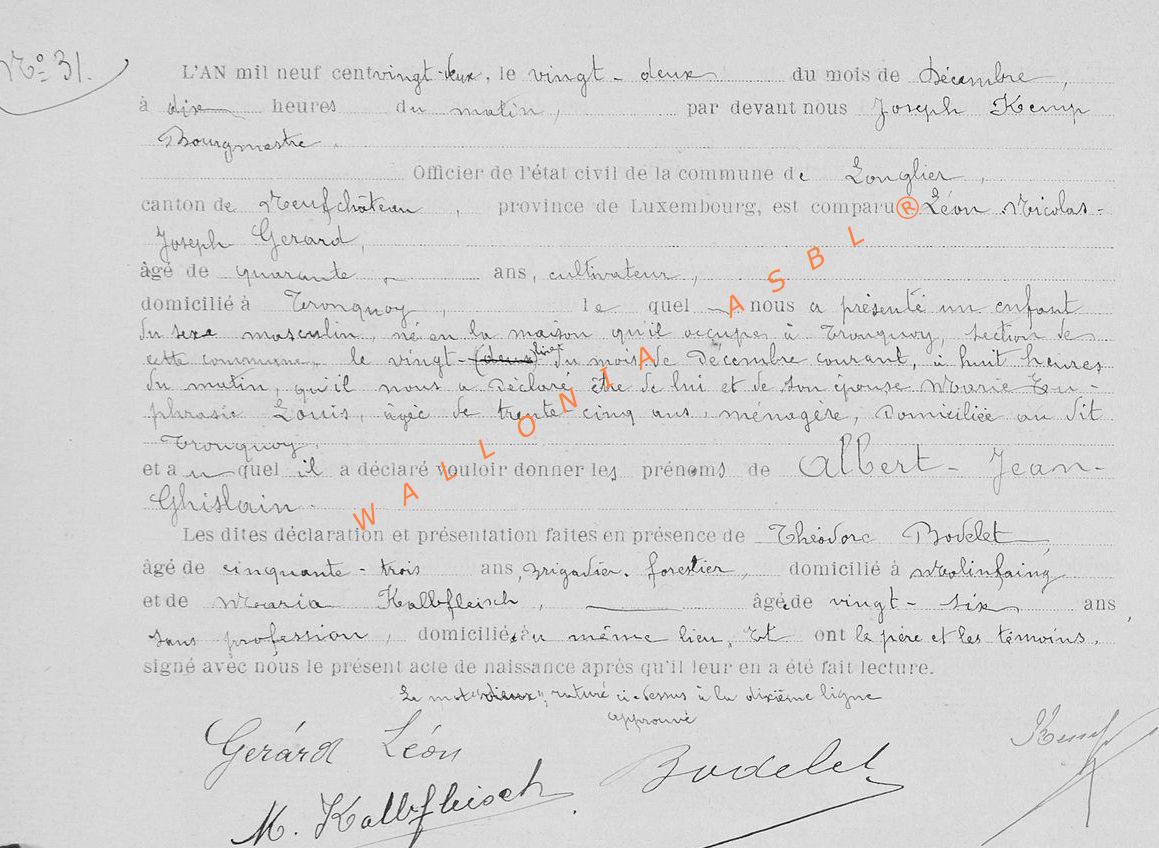 Nº 31.
L'AN mil neuf cent vingt-deux, le vingt-deux du mois de Décembre,
à dix heures du matin, par devant nous Joseph Kemp
Bourgmestre.
Officier de l'état civil de la commune de Longlier,
canton de Neufchâteau, province de Luxembourg, est comparu Léon Nicolas-
Joseph Gerard,
âgé de quarante ans, cultivateur,
domicilié à Tronquoy, lequel nous a présenté un enfant
du sexe masculin, né en la maison qu'il occupe à Tronquoy, section de
cette commune, le vingt-(deux) du mois de Décembre courant, à huit heures
du matin, qu'il nous a Déclaré être de lui et de son épouse Marie Eu-
phrasie Louis, âgée de trente cinq ans, ménagère, Domiciliée au dit
Tronquoy.
et auquel il a déclaré vouloir donner les prénoms de Albert-Jean-
Ghislain.
Les dites déclaration et présentation faites en présence de Théodore Bodelet,
âgé de cinquante-trois ans, Brigadier-forestier, domicilié à Molinfaing
et de Maria Kalbfleisch, âgée de vingt-six ans,
sans profession, domiciliée au même lieu, Et ont le père et les témoins.
signé avec nous le présent acte de naissance après qu'il leur en a été fait lecture.
Le mot "deux" raturé ci-dessus à la dixième ligne
approuvé
Gerárd Léon
Kemp
M. Kalbfleisch
Bodelet
WALLONIA ASBL ®